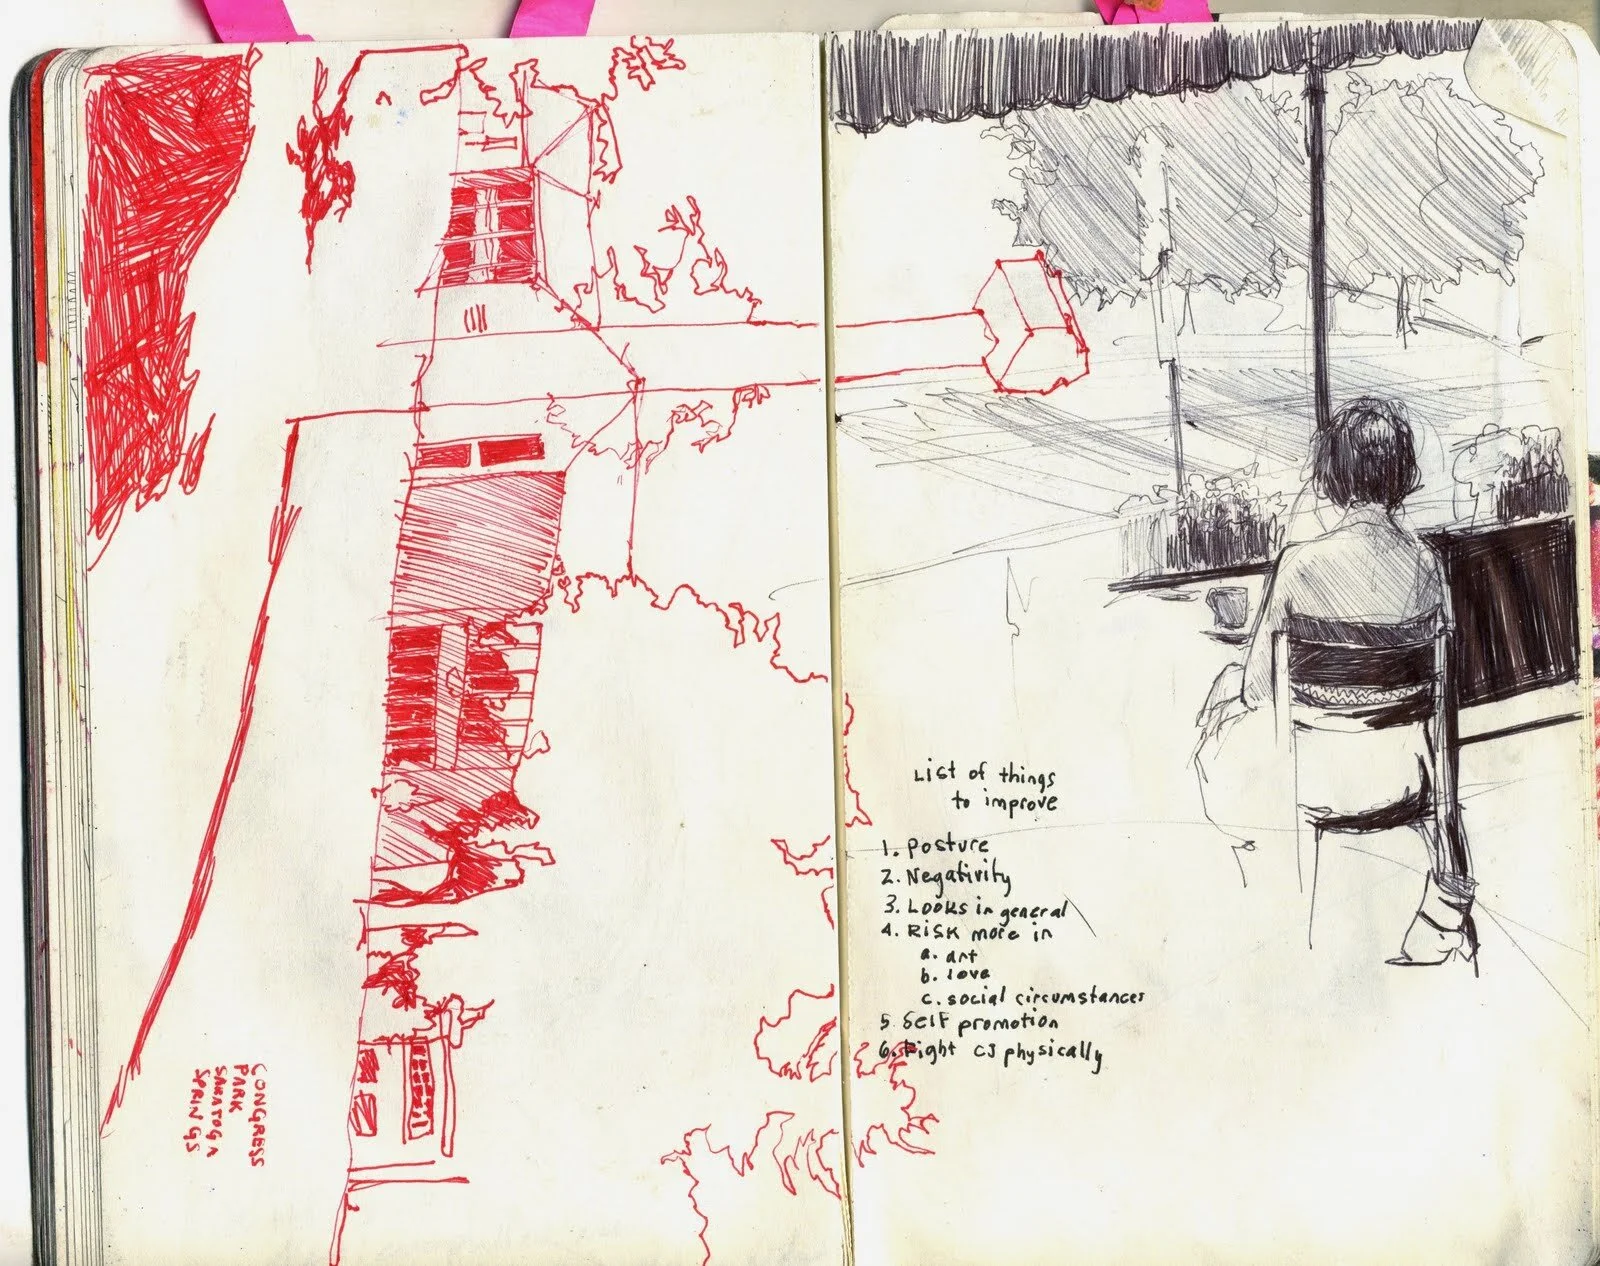 CONGRESS
PARK
SARATOGA
SPRINGS
List of things
to improve
1. Posture
2. Negativity
3. Looks in general
4. Risk more in
a. art
b. love
c. social circumstances
5 Self promotion
6. Fight CJ physically